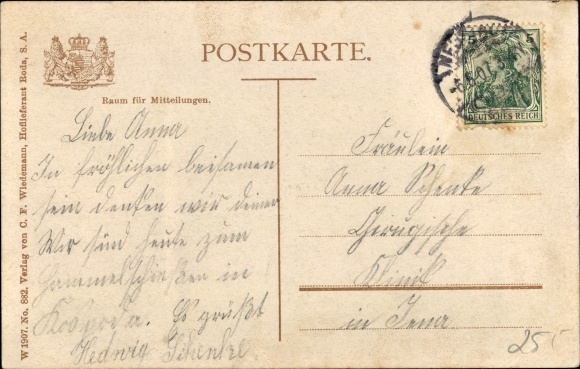 POSTKARTE.
Raum für Mitteilungen.
Liebe Anna
In fröhlichen beisamen
sein denken wir deiner
Wir sind heute zum
Hammelschießen in
Kospoda. Es grüßt
Hedwig Schenke
Fräulein
Anna Schenke
Chirugische
Klinik
in Jena
5 5
DEUTSCHES REICH
25
W 1907. No. 882. Verlag von C. F. Wiedemann, Hoflieferant Roda, S. A.